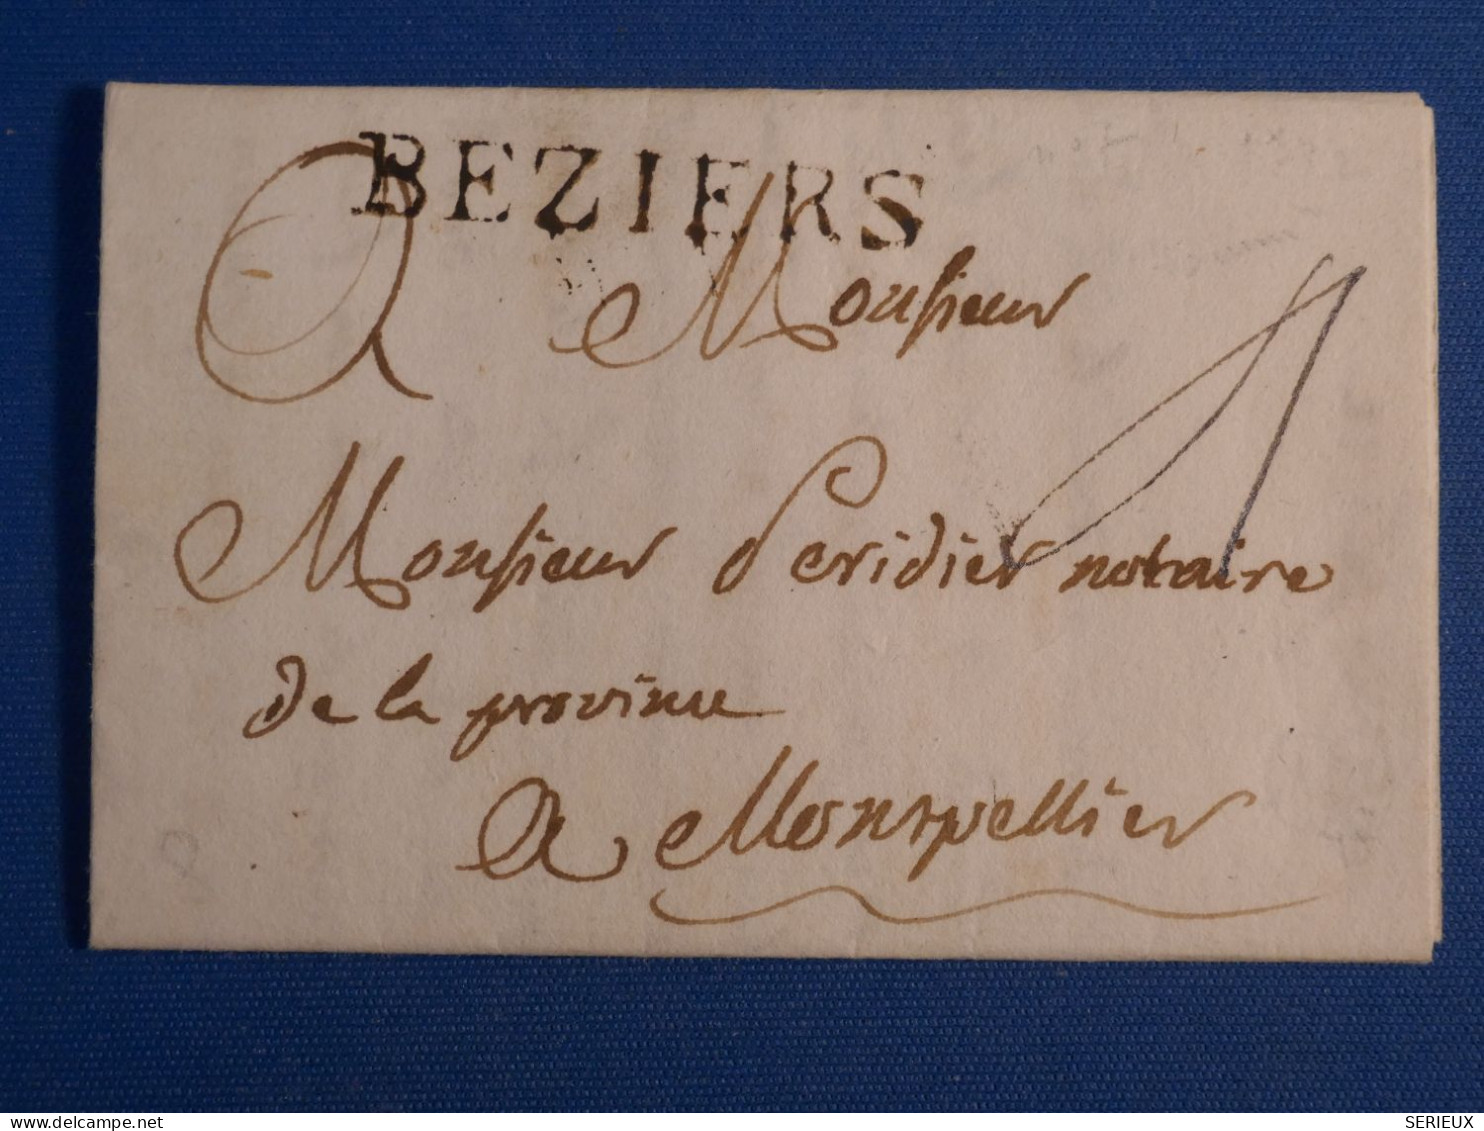 BEZIERS
A Monsieur
Monsieur Peridier notaire
de la province
A Montpellier
SERIEUX